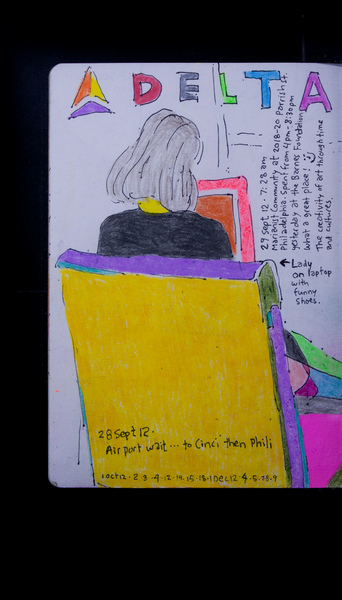 DELTA
29 Sept 12 · 7:28 am
Marianist Community at 2018-20 Parrish St.
Philadelphia. Spent from 4pm-8:30pm
yesterday at the Barnes Foundation
what a great place!
The creativity of art through time
and cultures.
← Lady
on laptop
with
funny
shoes.
28 Sept 12.
Airport wait ... to Cinci then Phili